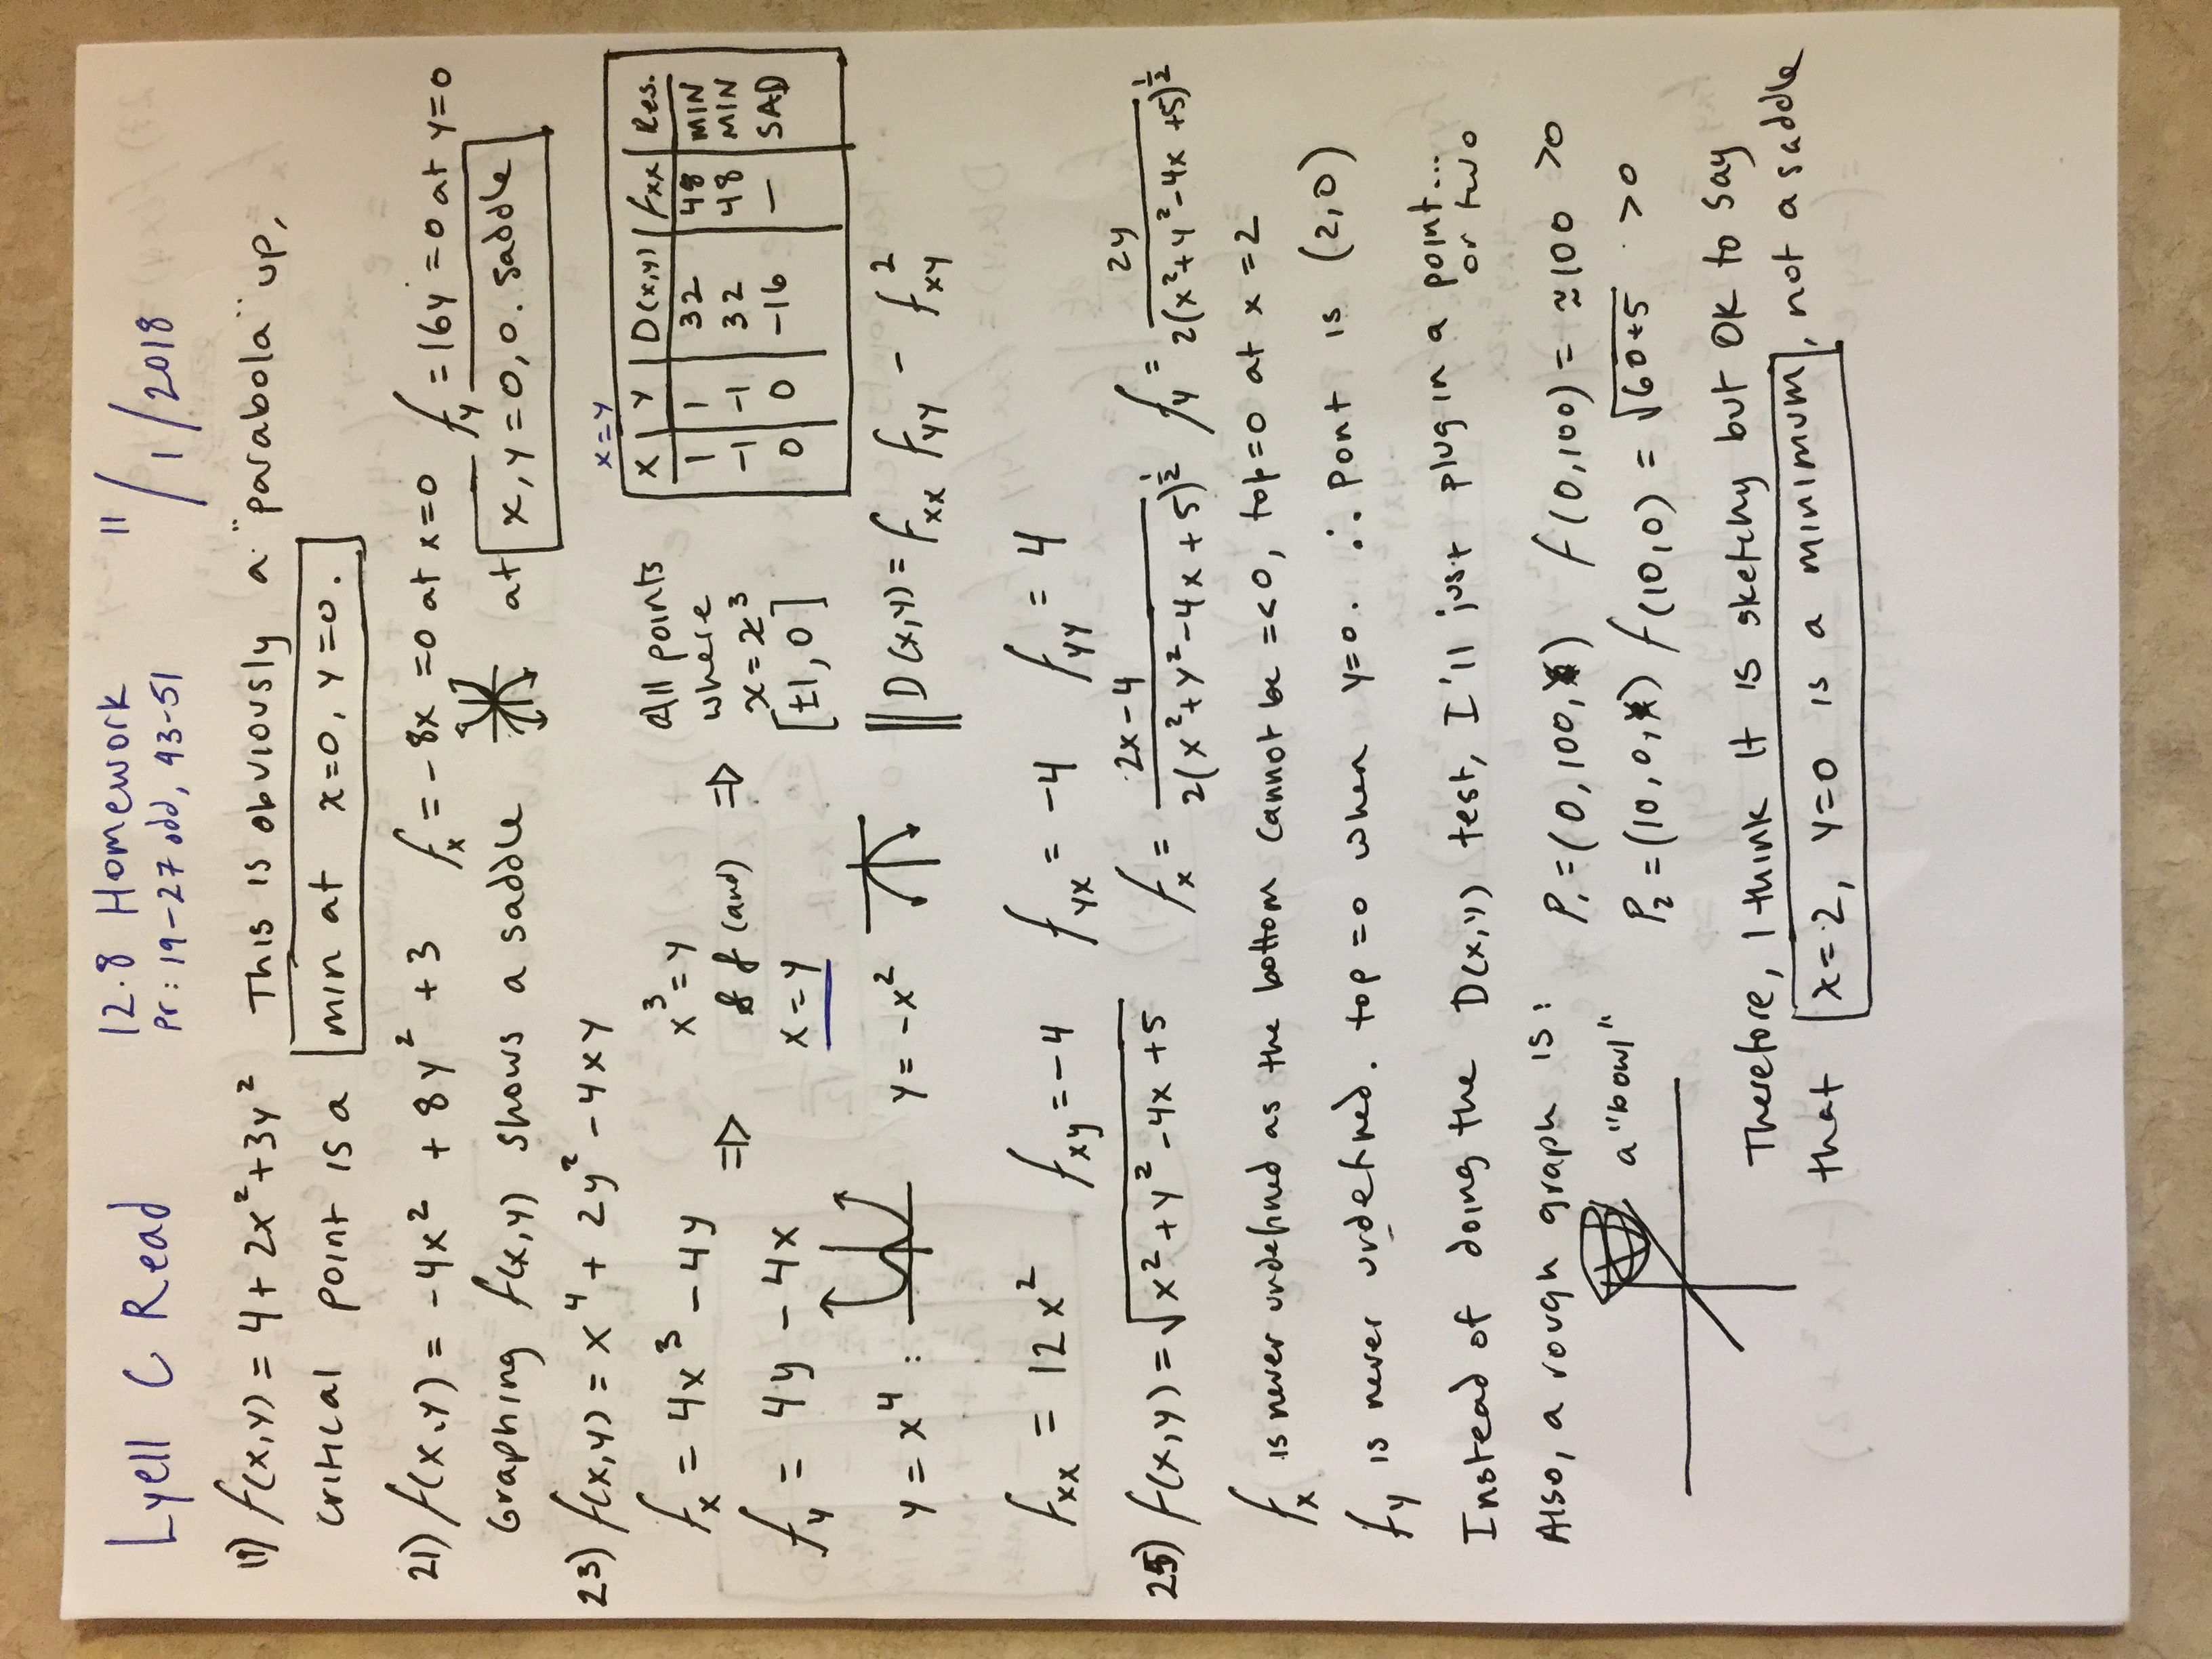 Lyell C Read 12.8 Homework 11/1/2018
Pr: 19-27 odd, 43-51
19) f(x,y) = 4 + 2x² + 3y² This is obviously a "parabola" up,
critical point is a min at x=0, y=0.
21) f(x,y) = -4x² + 8y² + 3 f_x = -8x = 0 at x=0 f_y = 16y = 0 at y=0
Graphing f(x,y) shows a saddle at x,y = 0,0. saddle
23) f(x,y) = x⁴ + 2y² - 4xy
f_x = 4x³ - 4y
f_y = 4y - 4x
⇒
x³ = y
(and)
x = y
⇒
All points
where
x = x³
[±1, 0]
x=y
X Y D(x,y) fxx Res.
1 1 32 48 MIN
-1 -1 32 48 MIN
0 0 -16 — SAD
y = x⁴ : y = -x² || D(x,y) = f_xx f_yy - f_xy²
f_xx = 12x² f_xy = -4 f_yx = -4 f_yy = 4
25) f(x,y) = √(x² + y² - 4x + 5) f_x = (2x-4)/(2(x²+y²-4x+5)^½) f_y = 2y/(2(x²+y²-4x+5)^½)
f_x is never undefined as the bottom cannot be =<0, top=0 at x=2
f_y is never undefined. top=0 when y=0. ∴ Pont is (2,0)
Instead of doing the D(x,y) test, I'll just plug in a point...
or two
Also, a rough graph is:
a "bowl"
P₁ = (0,100, ) f(0,100) = ≈100 >0
P₂ = (10,0, ) f(10,0) = √(60+5) >0
Therefore, I think it is sketchy but OK to say
that x=2, y=0 is a minimum, not a saddle